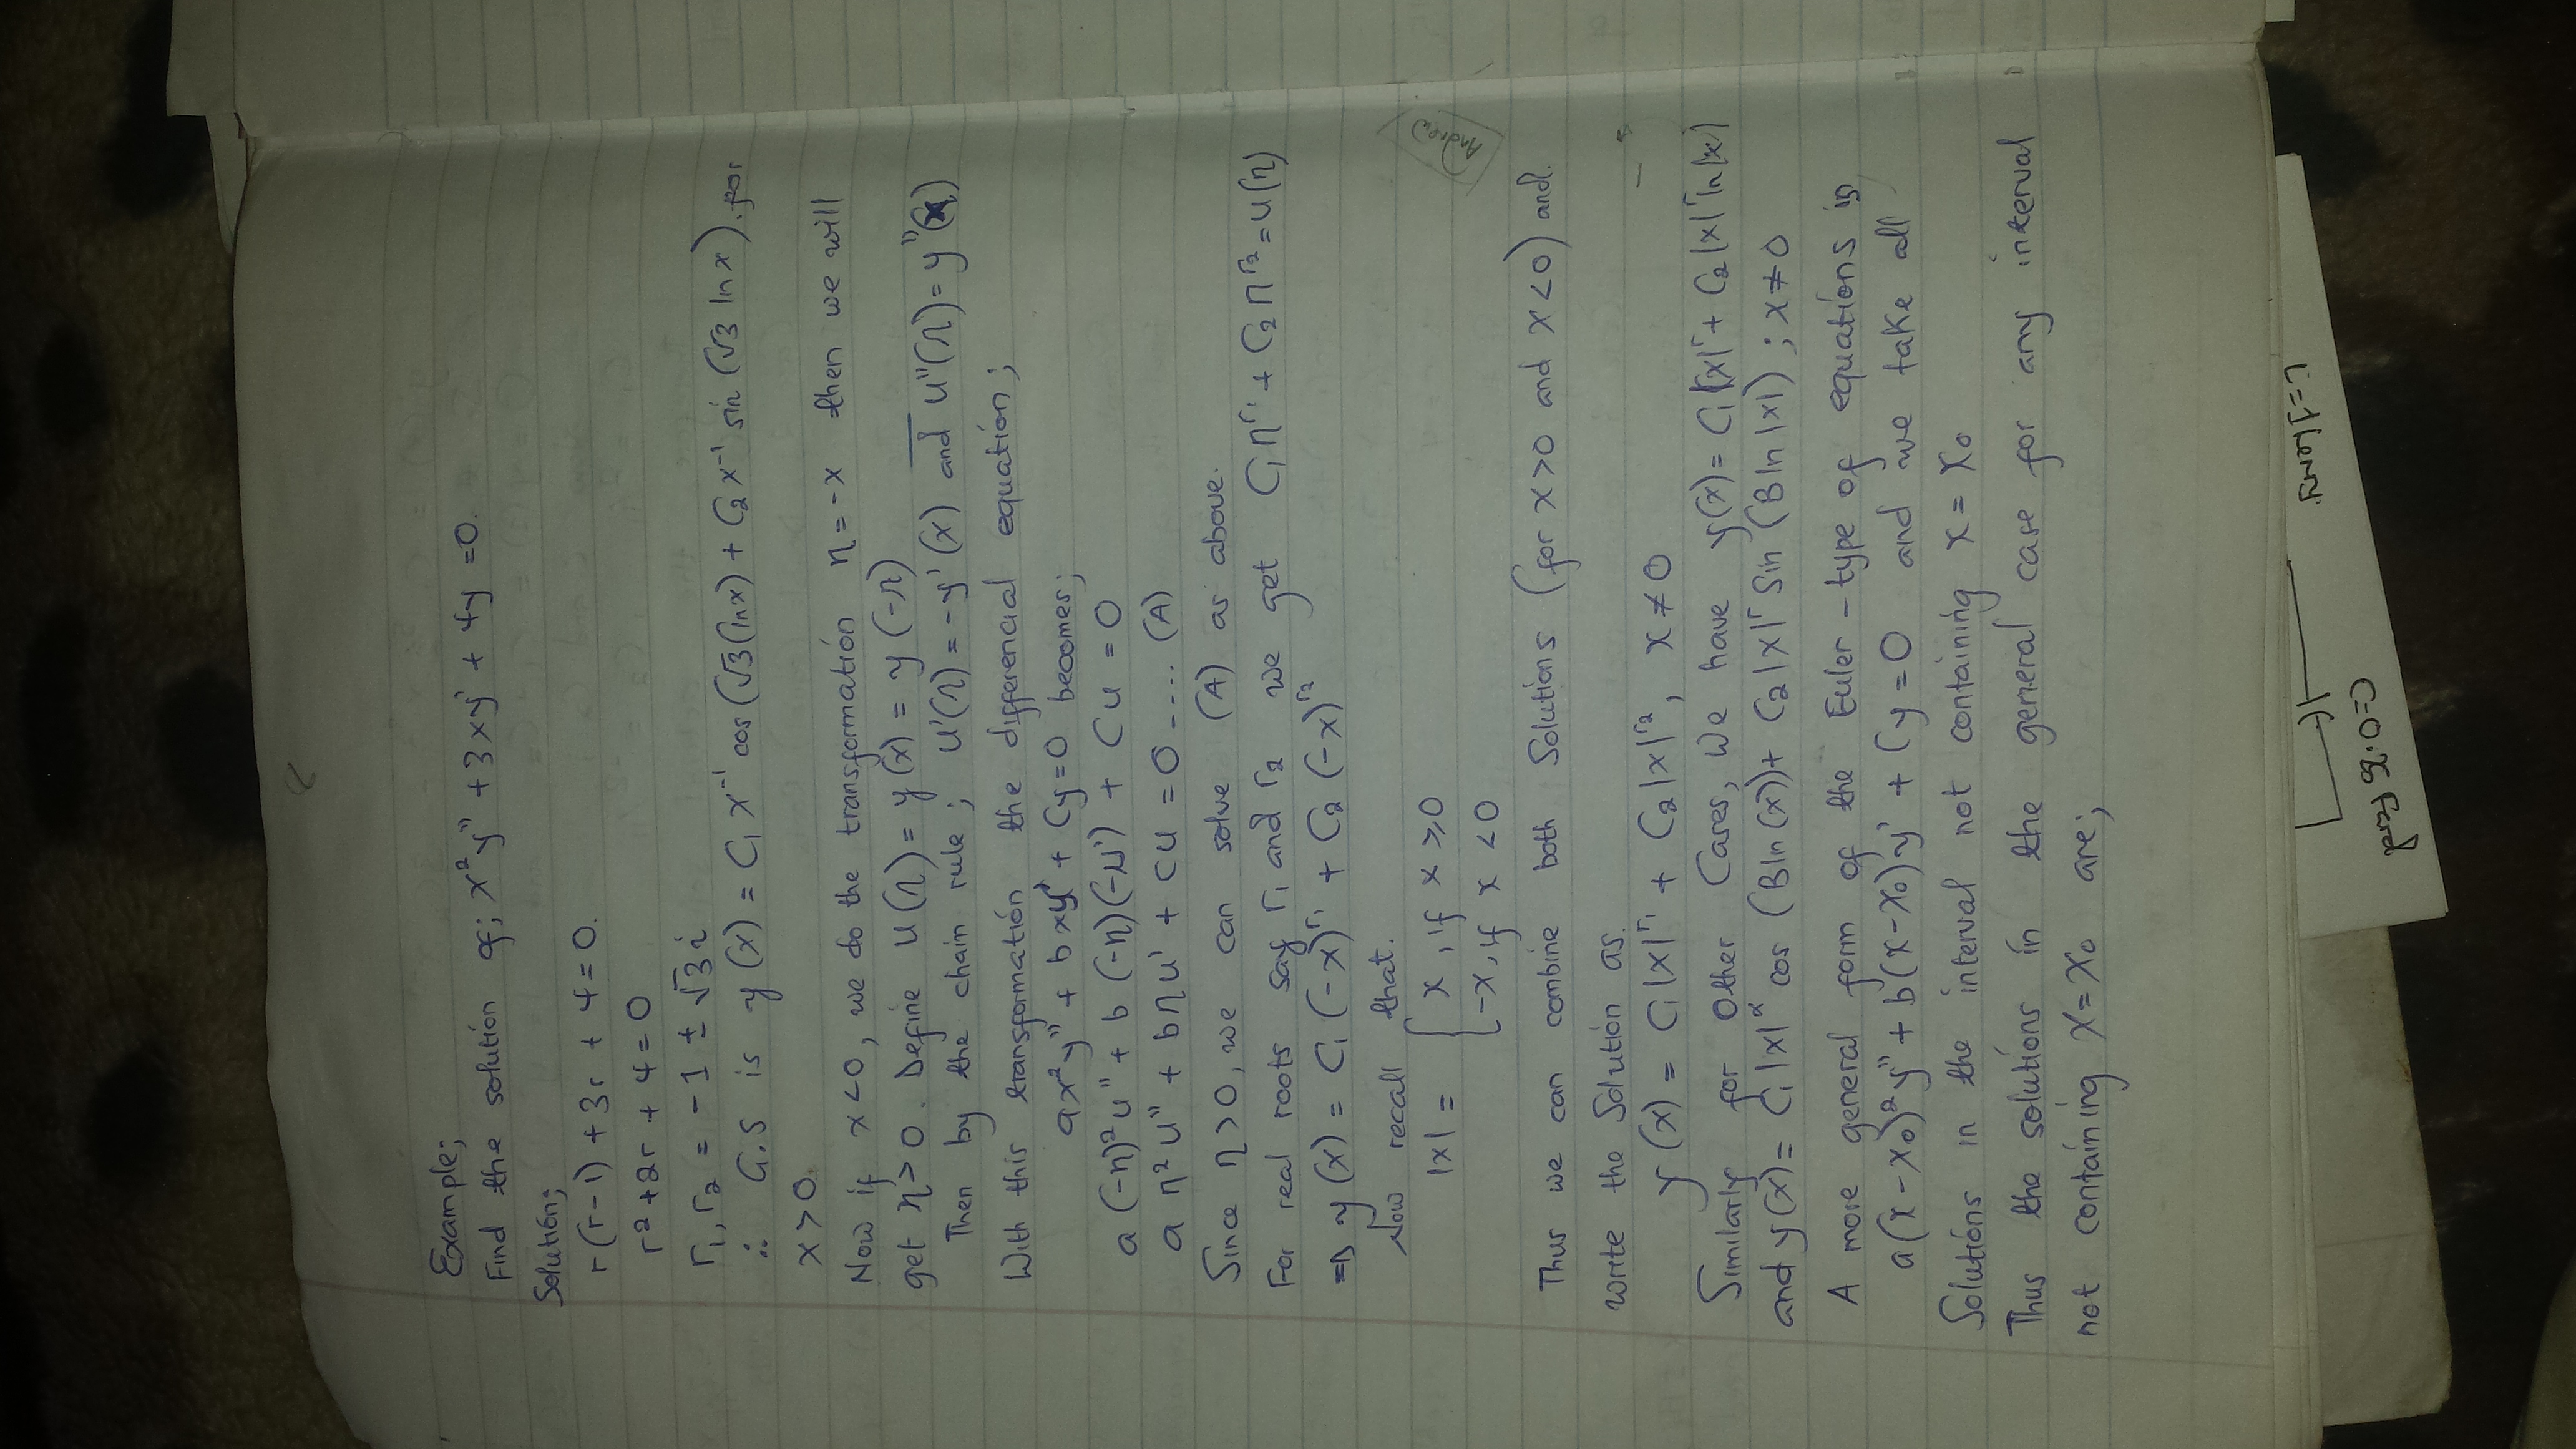 Example;
Find the solution of; x²y" + 3xy' + 4y = 0.
Solution;
r(r-1) + 3r + 4 = 0.
r² + 2r + 4 = 0
r₁, r₂ = -1 ± √3 i
∴ G.S is y(x) = C₁ x⁻¹ cos(√3(ln x) + C₂ x⁻¹ sin(√3 ln x). for
x > 0.
Now if x < 0, we do the transformation η = -x then we will
get η > 0. Define u(η) = y(x) = y(-η)
Then by the chain rule; u'(η) = -y'(x) and u"(η) = y"(x)
With this transformation the differencial equation;
ax²y" + bxy' + Cy = 0 becomes;
a(-η)²u" + b(-η)(-u') + Cu = 0
aη²u" + bηu' + Cu = 0 .... (A)
Since η > 0, we can solve (A) as above.
For real roots say r₁ and r₂ we get C₁η^r₁ + C₂η^r₂ = u(η)
⇒ y(x) = C₁(-x)^r₁ + C₂(-x)^r₂
Now recall that.
|x| = { x, if x ≥ 0
-x, if x < 0
Andrew
Thus we can combine both Solutions (for x > 0 and x < 0) and.
write the Solution as.
y(x) = C₁|x|^r₁ + C₂|x|^r₂, x ≠ 0
Similarly for Other Cases, we have y(x) = C₁|x|^r + C₂|x|^r ln|x|
and y(x) = C₁|x|^α cos(B ln(x)) + C₂|x|^r Sin(B ln|x|); x ≠ 0
A more general form of the Euler-type of equations is
a(x-x₀)²y" + b(x-x₀)y' + Cy = 0 and we take all
Solutions in the interval not containing x = x₀
Thus the solutions in the general case for any interval
not containing x = x₀ are;
L=1.6mμ